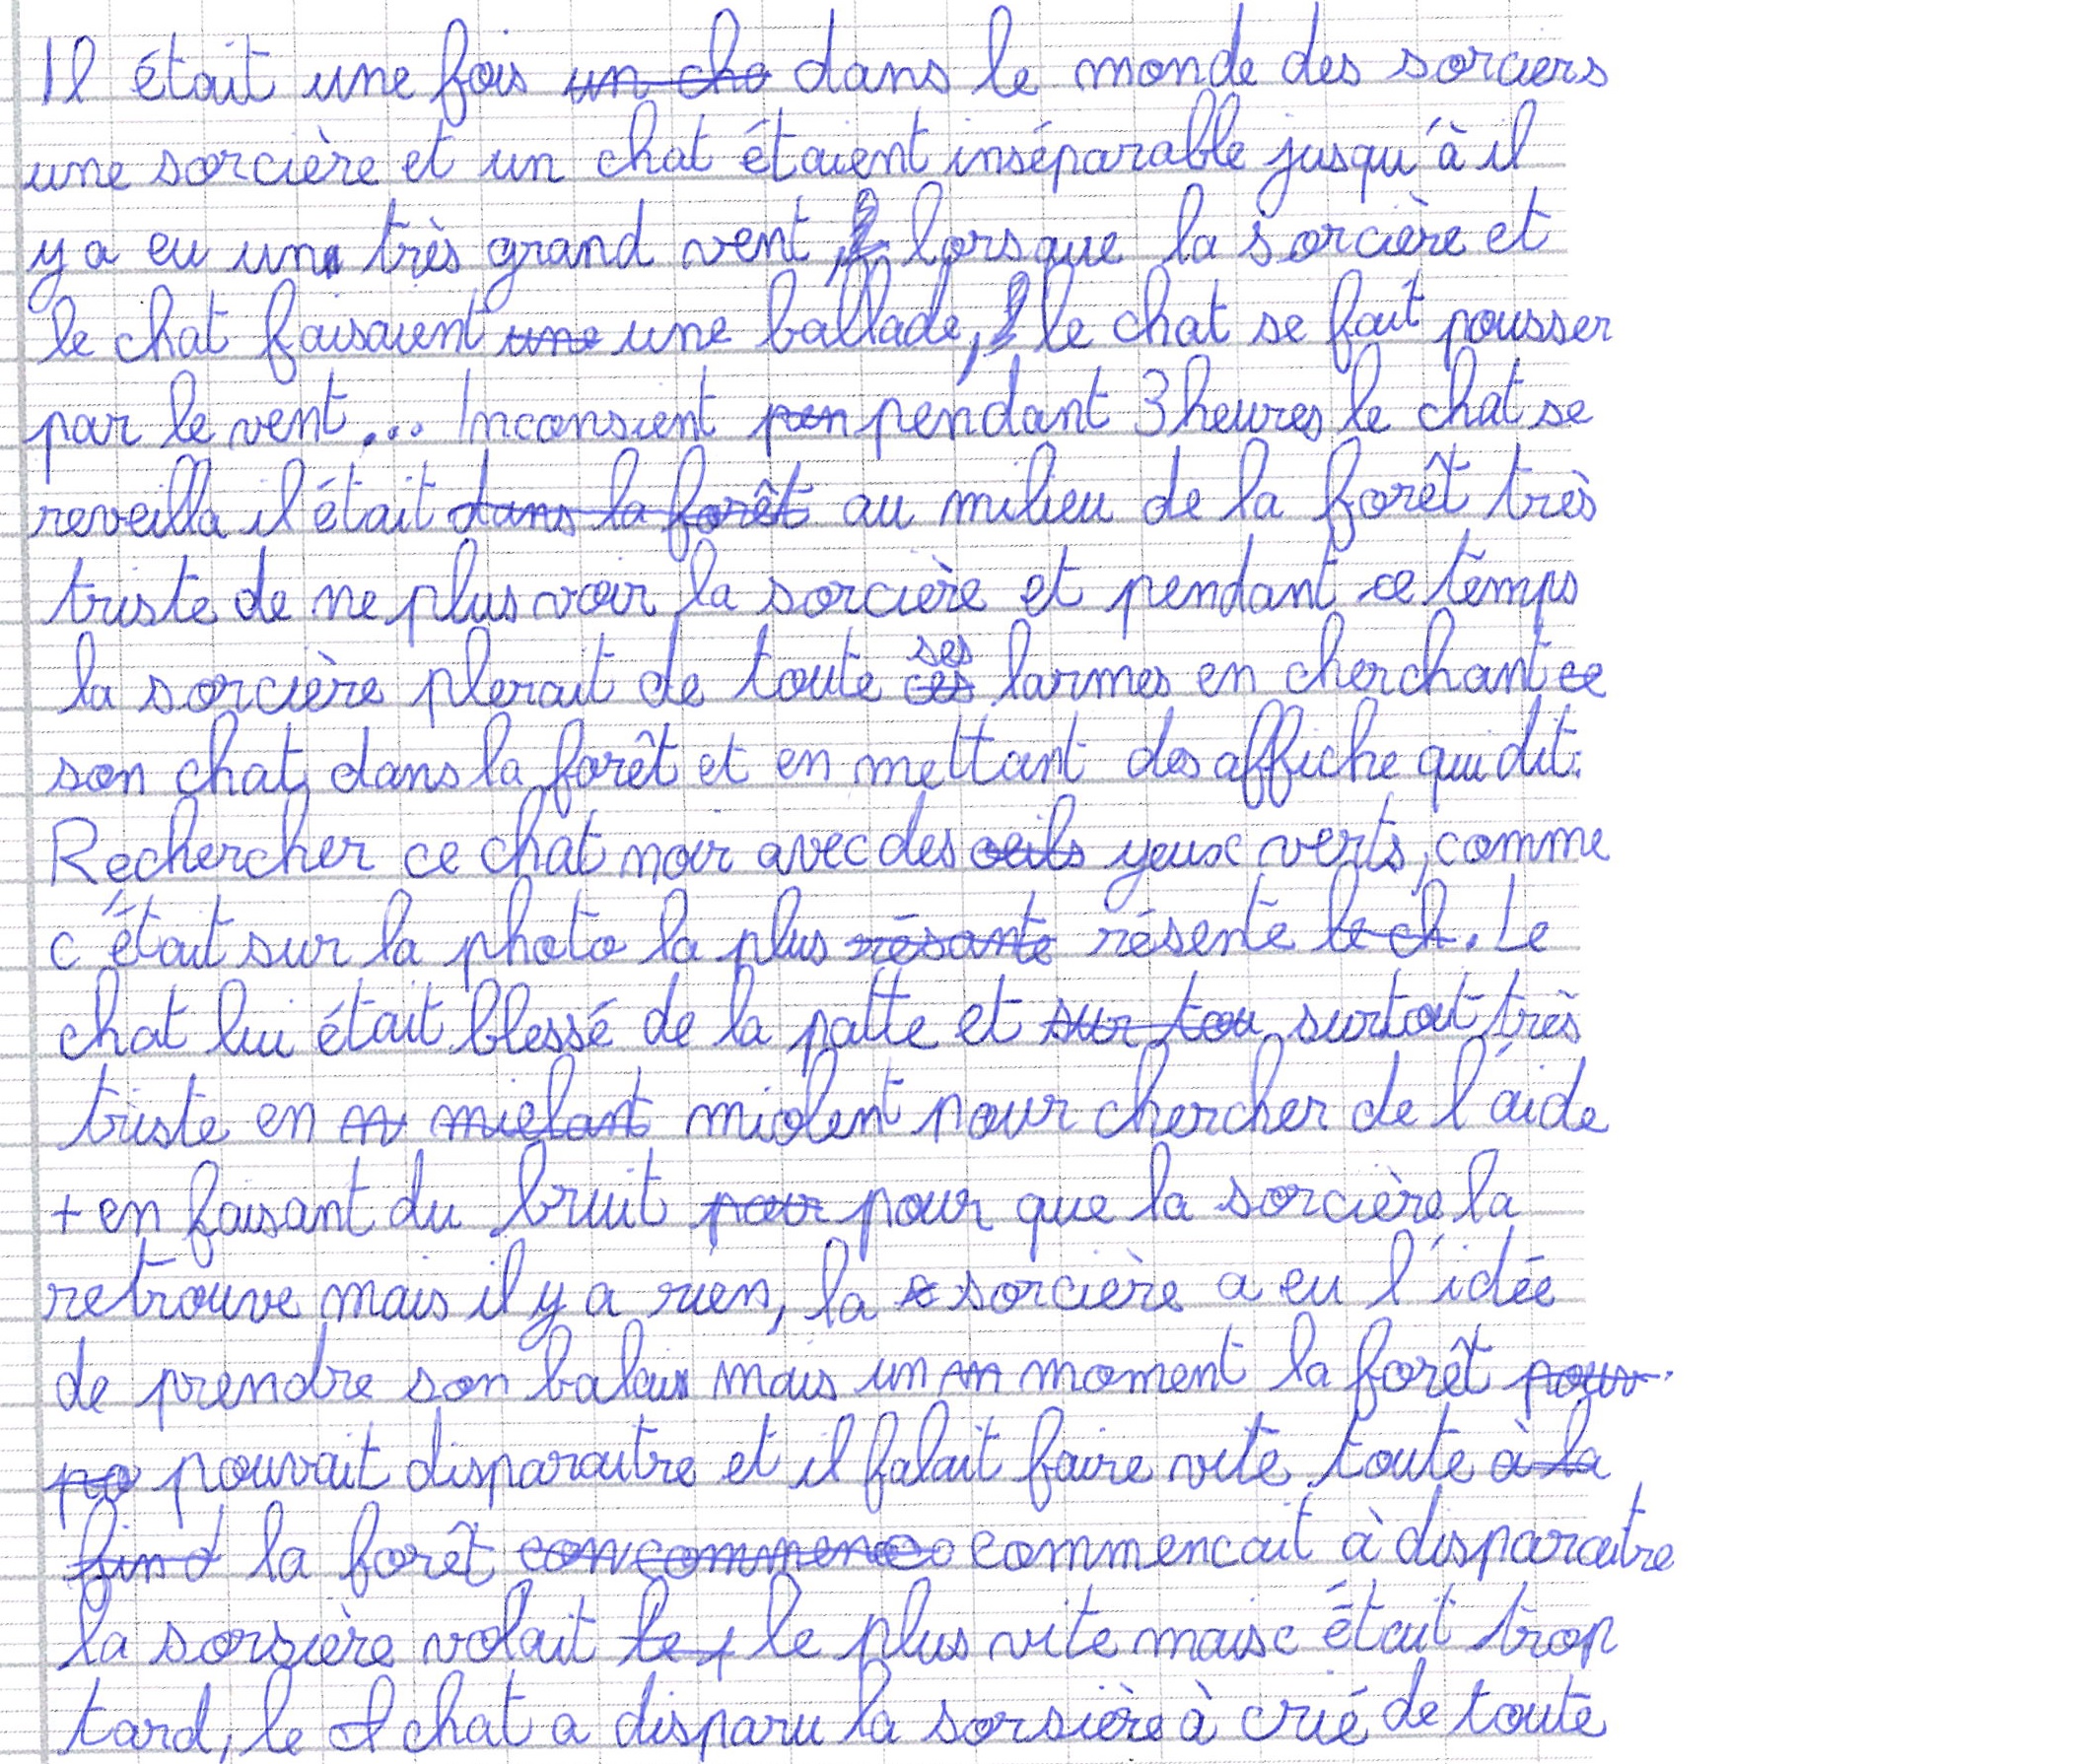 Il était une fois un cha dans le monde des sorciers
une sorcière et un chat étaient inséparable jusqu'à il
y a eu un très grand vent, lorsque la sorcière et
le chat faisaient une une ballade, le chat se fait pousser
par le vent... Inconsient pen pendant 3 heures le chat se
reveilla il était dans la forêt au milieu de la forêt très
triste de ne plus voir la sorcière et pendant ce temps
la sorcière plerait de toute ces ses larmes en cherchant ce
son chat dans la forêt et en mettant des affiche qui dit:
Rechercher ce chat noir avec des oeils yeux verts, comme
c'était sur la photo la plus résante résente le ch. Le
chat lui était blessé de la patte et sur tou surtout très
triste en m mielant miolent pour chercher de l'aide
+ en faisant du bruit pour pour que la sorcière la
retrouve mais il y a rien, la sorcière a eu l'idée
de prendre son balai mais un m moment la forêt pouv
po pouvait disparaitre et il falait faire vite toute à la
fin d la forêt con commenca commencait à disparaitre
la sorsière volait le + le plus vite mais c était trop
tard, le chat a disparu la sorsière à crié de toute